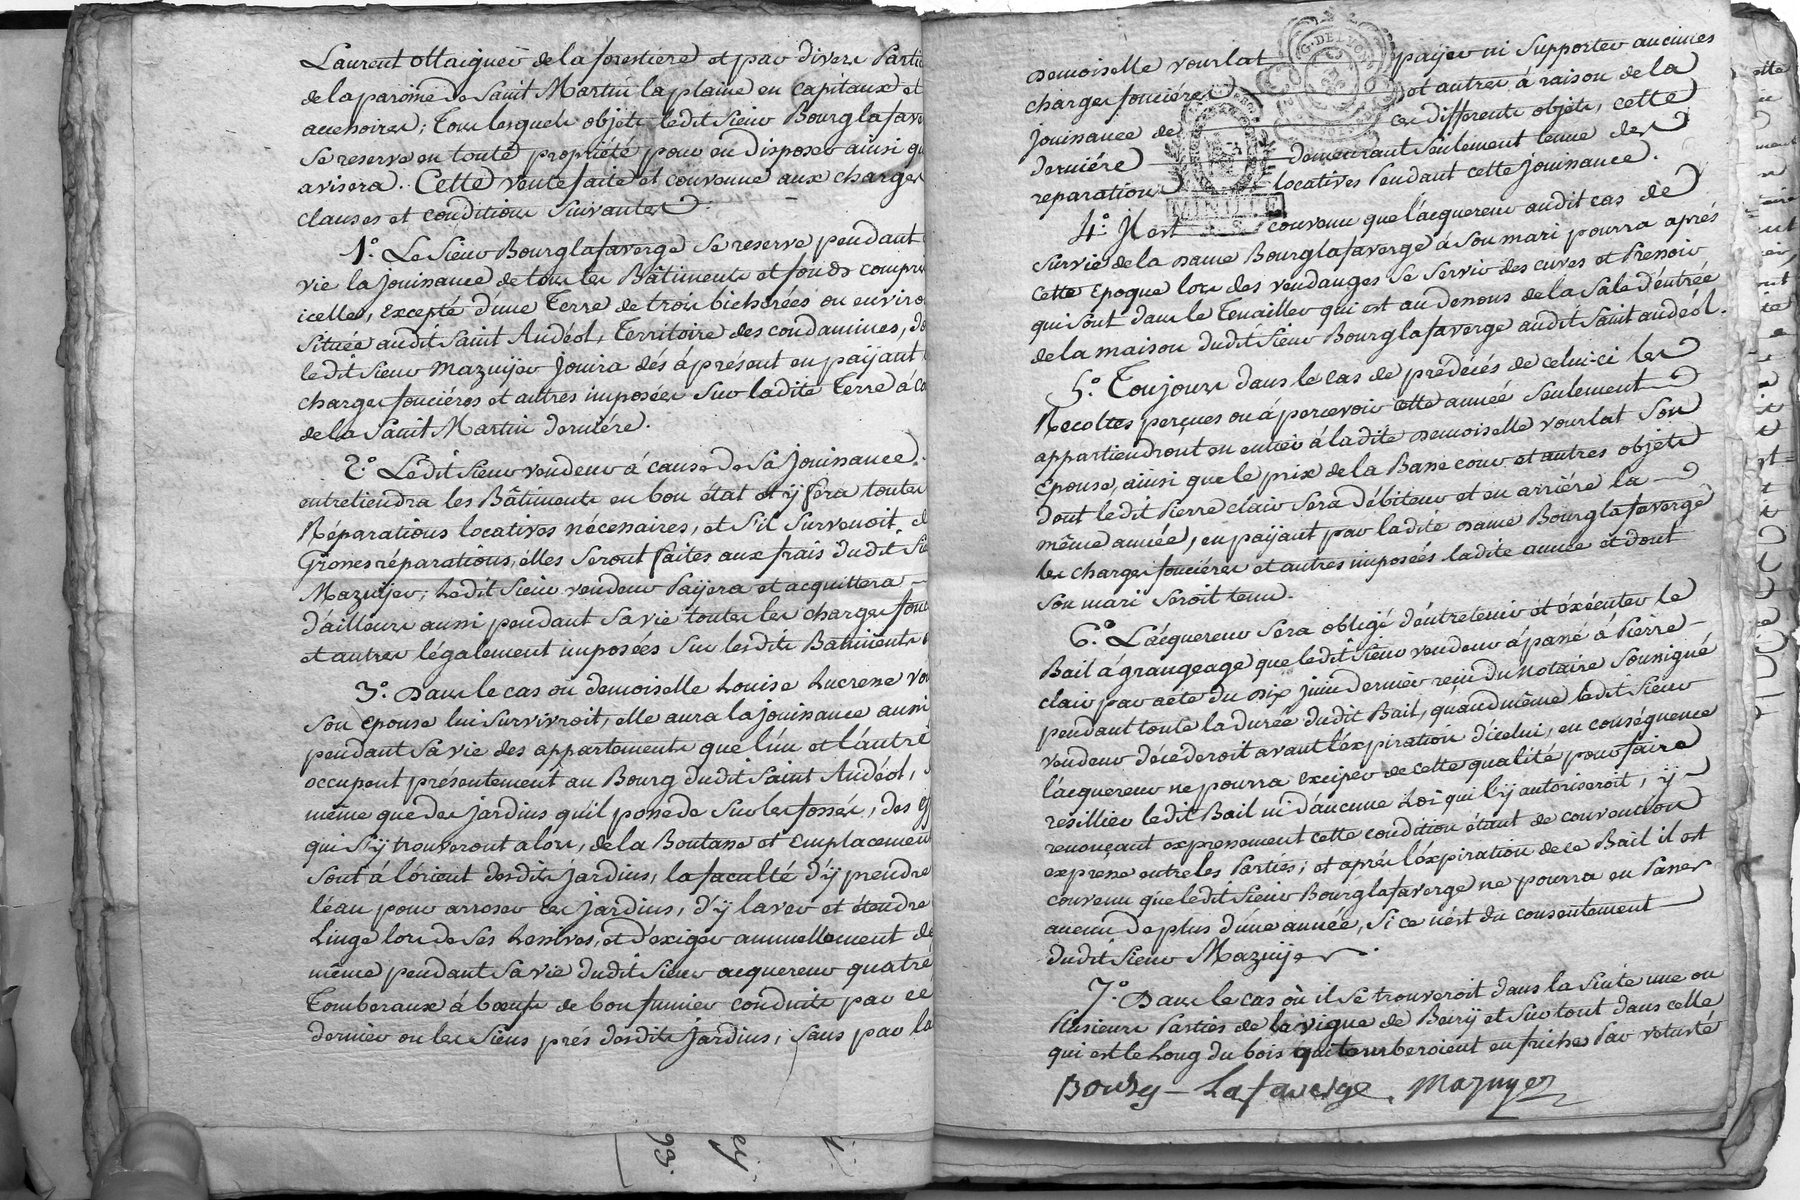 Laurent ottaiguer de la forestiere et par divers Parti
de la paroisse de Saint Martin la plaine en capitaux et
accessoires; Tous lesquels objets ledit Sieur Bourg lafave
Se reserve en toute propriété pour en disposer ainsi qu
avisera. Cette vente faite et convenue aux charges
clauses et conditions Suivantes:
1.° Le Sieur Bourg lafaverge Se reserve pendant
vie la jouissance de tous les Bâtiments et fonds compris
icelles, Excepté d'une Terre de trois bicherées ou enviro
Située audit Saint Andéol, Territoire des condamines, do
ledit Sieur Mazuyer Jouira dès àprésent en païjant
charges fonciéres et autres imposées Sur ladite Terre à co
de la Saint Martin derniére.
2.° Ledit Sieur vendeur à cause de Sa Jouissance
entretiendra les Bâtiments en bon état et ÿ fera toutes
Réparations locatives nécessaires, et S'il Survenoit d
Grosses réparations, elles Seront faites aux frais dudit Sie
Mazuÿer; Ledit Sieur vendeur Païjera et acquittera
d'ailleurs aussi pendant Sa vie toutes les charges fonc
et autres légalement imposées Sur lesdits Bâtiments
3.° Dans le cas où demoiselle Louise Lucresse Vou
Son Epouse lui Survivroit, elle aura la jouissance aussi
pendant Sa vie des appartements que l'un et l'autre
occupent présentement au Bourg dudit Saint Andéol,
même que des jardins qu'il possede Sur les fossés, des
qui S'ÿ trouveront alors, de la Boutasse et Emplacement
Sont à l'órient desdits jardins, la faculté d'ÿ prendre
l'éau pour arroser ces jardins, d'ÿ laver et étendre
Linge lors de Ses Lessives, et d'exiger annuellement de
même pendant Sa vie dudit Sieur acquereur quatre
Tombereaux à bœufs de bon fumier conduits par ce
dernier ou les Siens près desdits jardins, Sans par la
93.
demoiselle vourlat païjer ni Supporter aucunes
G. DE LYON
charges fonciéres et autres à raison de la
jouissance de ces differents objets, cette
derniére demeurant Seulement tenue des
reparations locatives Pendant cette Jouissance.
4.° Il est convenu que l'acquereur audit cas de
Survie de la Dame Bourg lafaverge à Son mari pourra aprés
cette Epoque lors des vendanges Se Servir des cuves et Pressoir
qui Sont dans le Tenailler qui est au dessous de la Sale d'éntrée
de la maison dudit Sieur Bourg lafaverge audit Saint andéol.
5.° Toujours dans le cas de prédécés de celui-ci les
Récoltes perçues ou à percevoir cette année Seulement
appartiendront en entier à ladite Demoiselle vourlat Son
Epouse, ainsi que le prix de la Basse cour et autres objets
dont ledit Pierre clair Sera débiteur et en arriére la
même année, en païjant par ladite Dame Bourg lafaverge
les charges fonciéres et autres imposées ladite année et dont
Son mari Seroit tenu.
6.° L'acquereur Sera obligé d'éntretenir et éxécuter le
Bail a grangeage que ledit Sieur vendeur à passé à Pierre
clair par acte du Dix juin dernier reçu du Notaire Soussigné
pendant toute la durée dudit Bail, quand même ledit Sieur
vendeur décederoit avant l'éxpiration d'icelui, en conséquence
l'acquereur ne pourra Exciper de cette qualité pour faire
resillier ledit Bail ni d'aucune Loi qui l'ÿ autoriseroit, ÿ
renonçant expressement cette condition étant de convention
expresse entre les Parties; et aprés l'éxpiration de ce Bail il est
convenu que ledit Sieur Bourg lafaverge ne pourra en Passer
aucun de plus d'une année, Si ce n'est du consentement
dudit Sieur Mazuÿer.
7.° Dans le cas où il Se trouveroit dans la Suite une ou
Plusieurs Parties de la vigne de Beirÿ et Sur tout dans celle
qui est le Long du bois qui tomberoient en friches Par vetusté
Bourg-Lafaverge Mazuyer